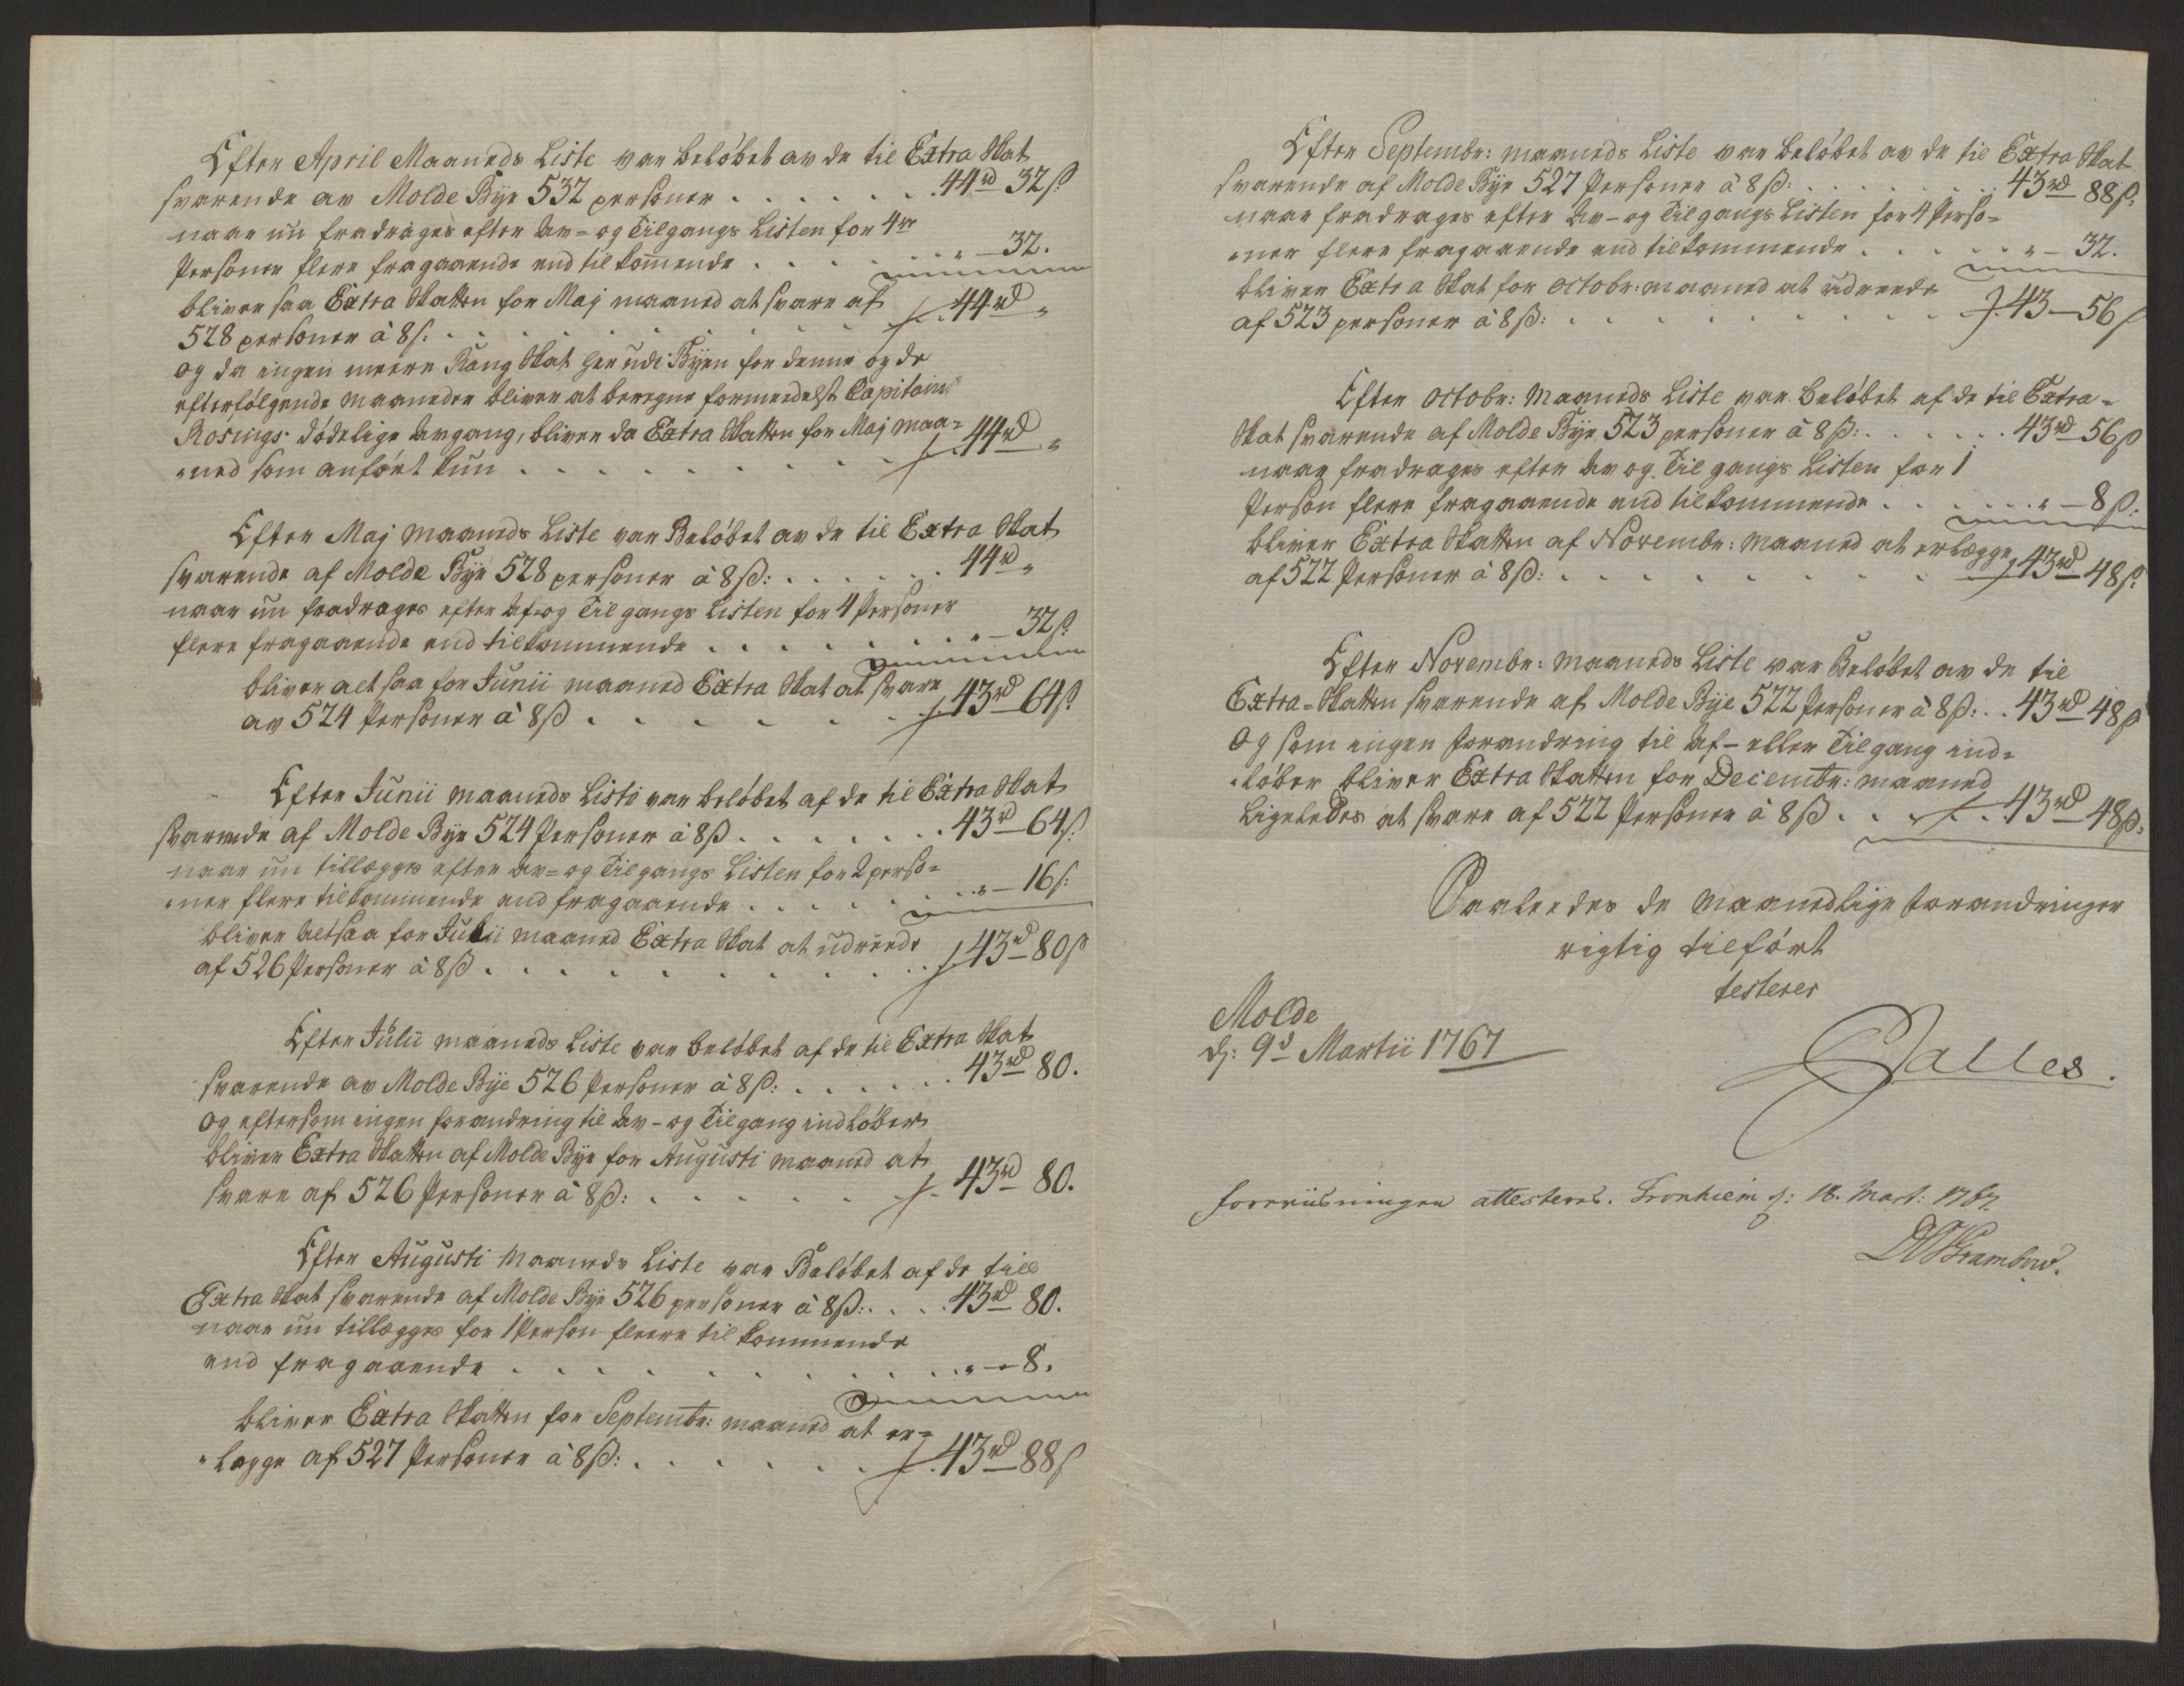 Efter April Maaneds Liste var beløbet av de til Extra Skat
svarende av Molde Bye 532 personer . . . . . . 44rd 32ß
naar nu fradrages efter Av- og Tilgangs Listen for 4re
Personer flere fragaaende end tilkommende . . . . . . „ — 32.
bliver saa Extra Skatten for Maj maaned at svare af
528 personer à 8ß. . . . . . . . 44rd „
og da ingen meere Rang Skat her udi Byen for denne og de
efterfølgende Maaneder bliver at beregne formedelst Capitain
Rosings dødelige Avgang, bliver da Extra Skatten for Maj Maa-
„ned som anført kun . . . . . . . 44rd „
Efter Maj Maaneds Liste var Beløbet av de til Extra Skat
svarende af Molde Bye 528 personer à 8ß: . . . . . . 44rd „
naar nu fradrages efter Af- og Tilgangs Listen for 4 Personer
flere fragaaende end tilkommende . . . . . . . „ — 32ß
bliver altsaa for Junii maaned Extra Skat at svare
av 524 Personer à 8ß . . . . . . . 43rd 64ß
Efter Junii maaneds Liste var beløbet af de til Extra Skat
svarende af Molde Bye 524 Personer à 8ß . . . . . . 43rd 64ß:
naar nu tillægges efter Av- og Tilgangs Listen for 2 perso-
„ner flere tilkommende end fragaaende . . . . . . „ — 16ß:
bliver altsaa for Julii maaned Extra Skat at udreede
af 526 Personer à 8ß . . . . . . . . 43rd 80ß
Efter Julii maaneds Liste var beløbet af de til Extra Skat
svarende av Molde Bye 526 Personer à 8ß: . . . . . . 43rd 80.
og eftersom ingen forandring til Av- og Tilgang indløber
bliver Extra Skatten af Molde Bye for Augusti maaned at
svare af 526 Personer à 8ß: . . . . . . . 43rd 80.
Efter Augusti Maaneds Liste var Beløbet af de till
Extra Skat svarende af Molde Bye 526 personer à 8ß: . . . . 43rd 80.
naar nu tillægges for 1 Person fleere tilkommende
end fragaaende . . . . . . . . . „ — 8.
bliver Extra Skatten for Septembr: maaned at er-
„lægge af 527 Personer à 8ß: . . . . . . . 43rd 88ß
Efter Septembr: maaneds Liste var beløbet av de til Extra Skat
svarende af Molde Bye 527 Personer à 8ß: . . . . . . . 43rd 88ß:
naar fradrages efter Av- og Tilgangs Listen for 4 Perso-
„ner flere fragaaende end tilkommende . . . . . . „ — 32.
bliver Extra Skat for octobr: maaned at udreede
af 523 personer à 8ß: . . . . . . . . . 43 — 56ß
Efter octobr: Maaneds Liste var beløbet af de til Extra-
Skat svarende af Molde Bye 523 personer à 8ß: . . . . . . 43rd 56ß
naar fradrages efter Av og Tilgangs Listen for 1
Person flere fragaaende end tilkommende . . . . . . „ — 8ß.
bliver Extra Skatten af Novembr: maaned at erlægge
af 522 Personer à 8ß: . . . . . . . . 43rd 48ß:
Efter Novembr: Maaneds Liste var Beløbet av de til
Extra-Skatten svarende af Molde Bye 522 Personer à 8ß: . . 43rd 48ß
og som ingen forandring til Af- eller Tilgang ind-
„løber bliver Extra Skatten for Decembr: maaned
Ligeledes at svare af 522 Personer à 8ß . . . . 43rd 48ß.
Saaleedes de Maanedlige forandringer
rigtig tilført
testeres
Molde
d: 9d Martii 1767
Salles.
Foreviisningen attesteres. Tronhiem d: 18. Mart: 1767.